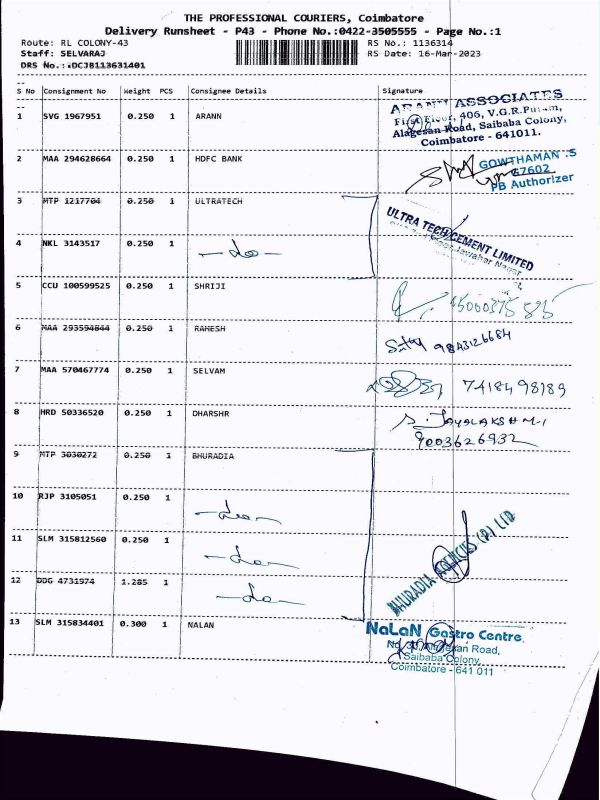 THE PROFESSIONAL COURIERS, Coimbatore
Delivery Runsheet - P43 - Phone No.:0422-3505555 - Page No.:1
Route: RL COLONY-43 RS No.: 1136314
Staff: SELVARAJ RS Date: 16-Mar-2023
DRS No.:*DCJB113631401
S No Consignment No Weight PCS Consignee Details Signature
1 SVG 1967951 0.250 1 ARANN
ARANN ASSOCIATES
First Floor, 406, V.G.R.Puram,
Alagesan Road, Saibaba Colony,
Coimbatore - 641011.
2 MAA 294628664 0.250 1 HDFC BANK
GOWTHAMAN .S
67602
PB Authorizer
3 MTP 1217704 0.250 1 ULTRATECH
ULTRA TECH CEMENT LIMITED
4 NKL 3143517 0.250 1 -do-
5 CCU 100599525 0.250 1 SHRIJI
6 MAA 293594844 0.250 1 RAMESH 9843126684
7 MAA 570467774 0.250 1 SELVAM 7418498189
8 HRD 50336520 0.250 1 DHARSHR S. JAYALAKSHMI
9003626932
9 MTP 3030272 0.250 1 BHURADIA
10 RJP 3105051 0.250 1 -do-
11 SLM 315812560 0.250 1 -do-
12 DDG 4731974 1.285 1 -do-
BHURADIA AGENCIES (P) LTD
13 SLM 315834401 0.300 1 NALAN
NaLaN Gastro Centre,
Alagesan Road,
Saibaba Colony,
Coimbatore - 641 011